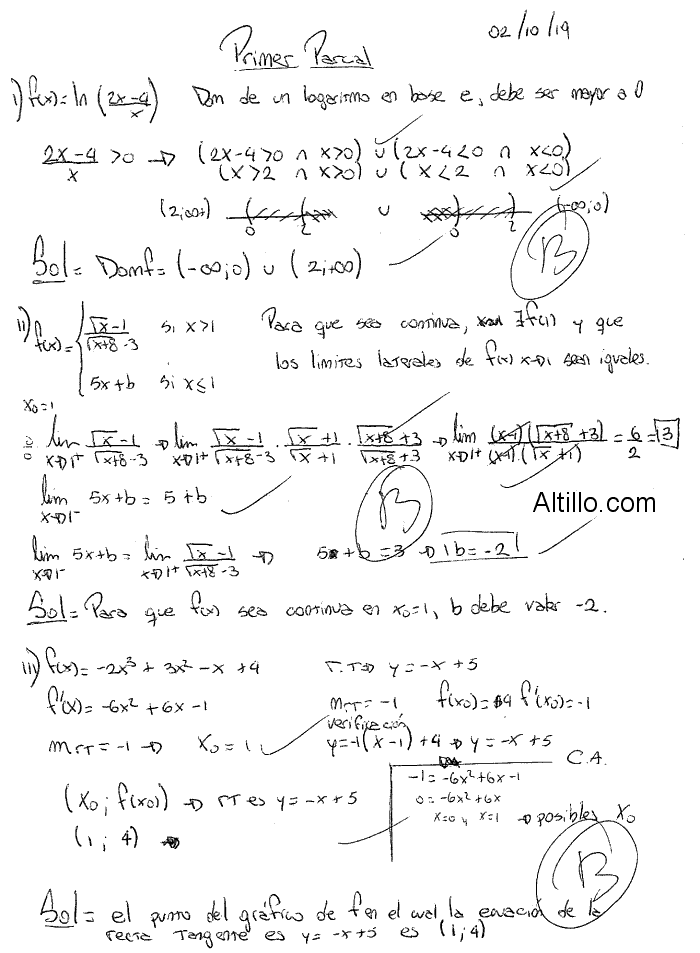 02/10/19
Primer Parcial
i) f(x) = ln (2x-4/x) Dom de un logaritmo en base e, debe ser mayor a 0
2x-4/x > 0 → (2x-4>0 ∩ x>0) ∪ (2x-4<0 ∩ x<0)
(x>2 ∩ x>0) ∪ (x<2 ∩ x<0)
(2;∞+) 0 2 ∪ 0 2 (-∞;0)
B
Sol = Domf = (-∞;0) ∪ (2;+∞)
ii) f(x) = { √x-1/√x+8-3 si x>1 Para que sea continua, ∃f(1) y que
5x+b si x≤1 los limites laterales de f(x) x→1 sean iguales.
x₀=1
lim x→1⁺ √x-1/√x+8-3 → lim x→1⁺ √x-1/√x+8-3 · √x+1/√x+1 · √x+8+3/√x+8+3 → lim x→1⁺ (x-1)(√x+8+3)/(x-1)(√x+1) = 6/2 = 3
lim x→1⁻ 5x+b = 5+b
B
Altillo.com
lim x→1⁻ 5x+b = lim x→1⁺ √x-1/√x+8-3 → 5+b=3 → b=-2
Sol = Para que f(x) sea continua en x₀=1, b debe valer -2.
iii) f(x) = -2x³ + 3x² - x + 4 r.T→ y=-x+5
f'(x) = -6x² + 6x - 1 mrT = -1 f(x₀)=4 f'(x₀)=-1
verificación
mrT = -1 → x₀=1 y=-1(x-1)+4 → y=-x+5
C.A.
-1 = -6x²+6x-1
(x₀; f(x₀)) → rT es y=-x+5 0 = -6x²+6x
x=0 y x=1 → posibles x₀
(1; 4)
B
Sol = el punto del gráfico de f en el cual la ecuación de la
recta tangente es y=-x+5 es (1;4)